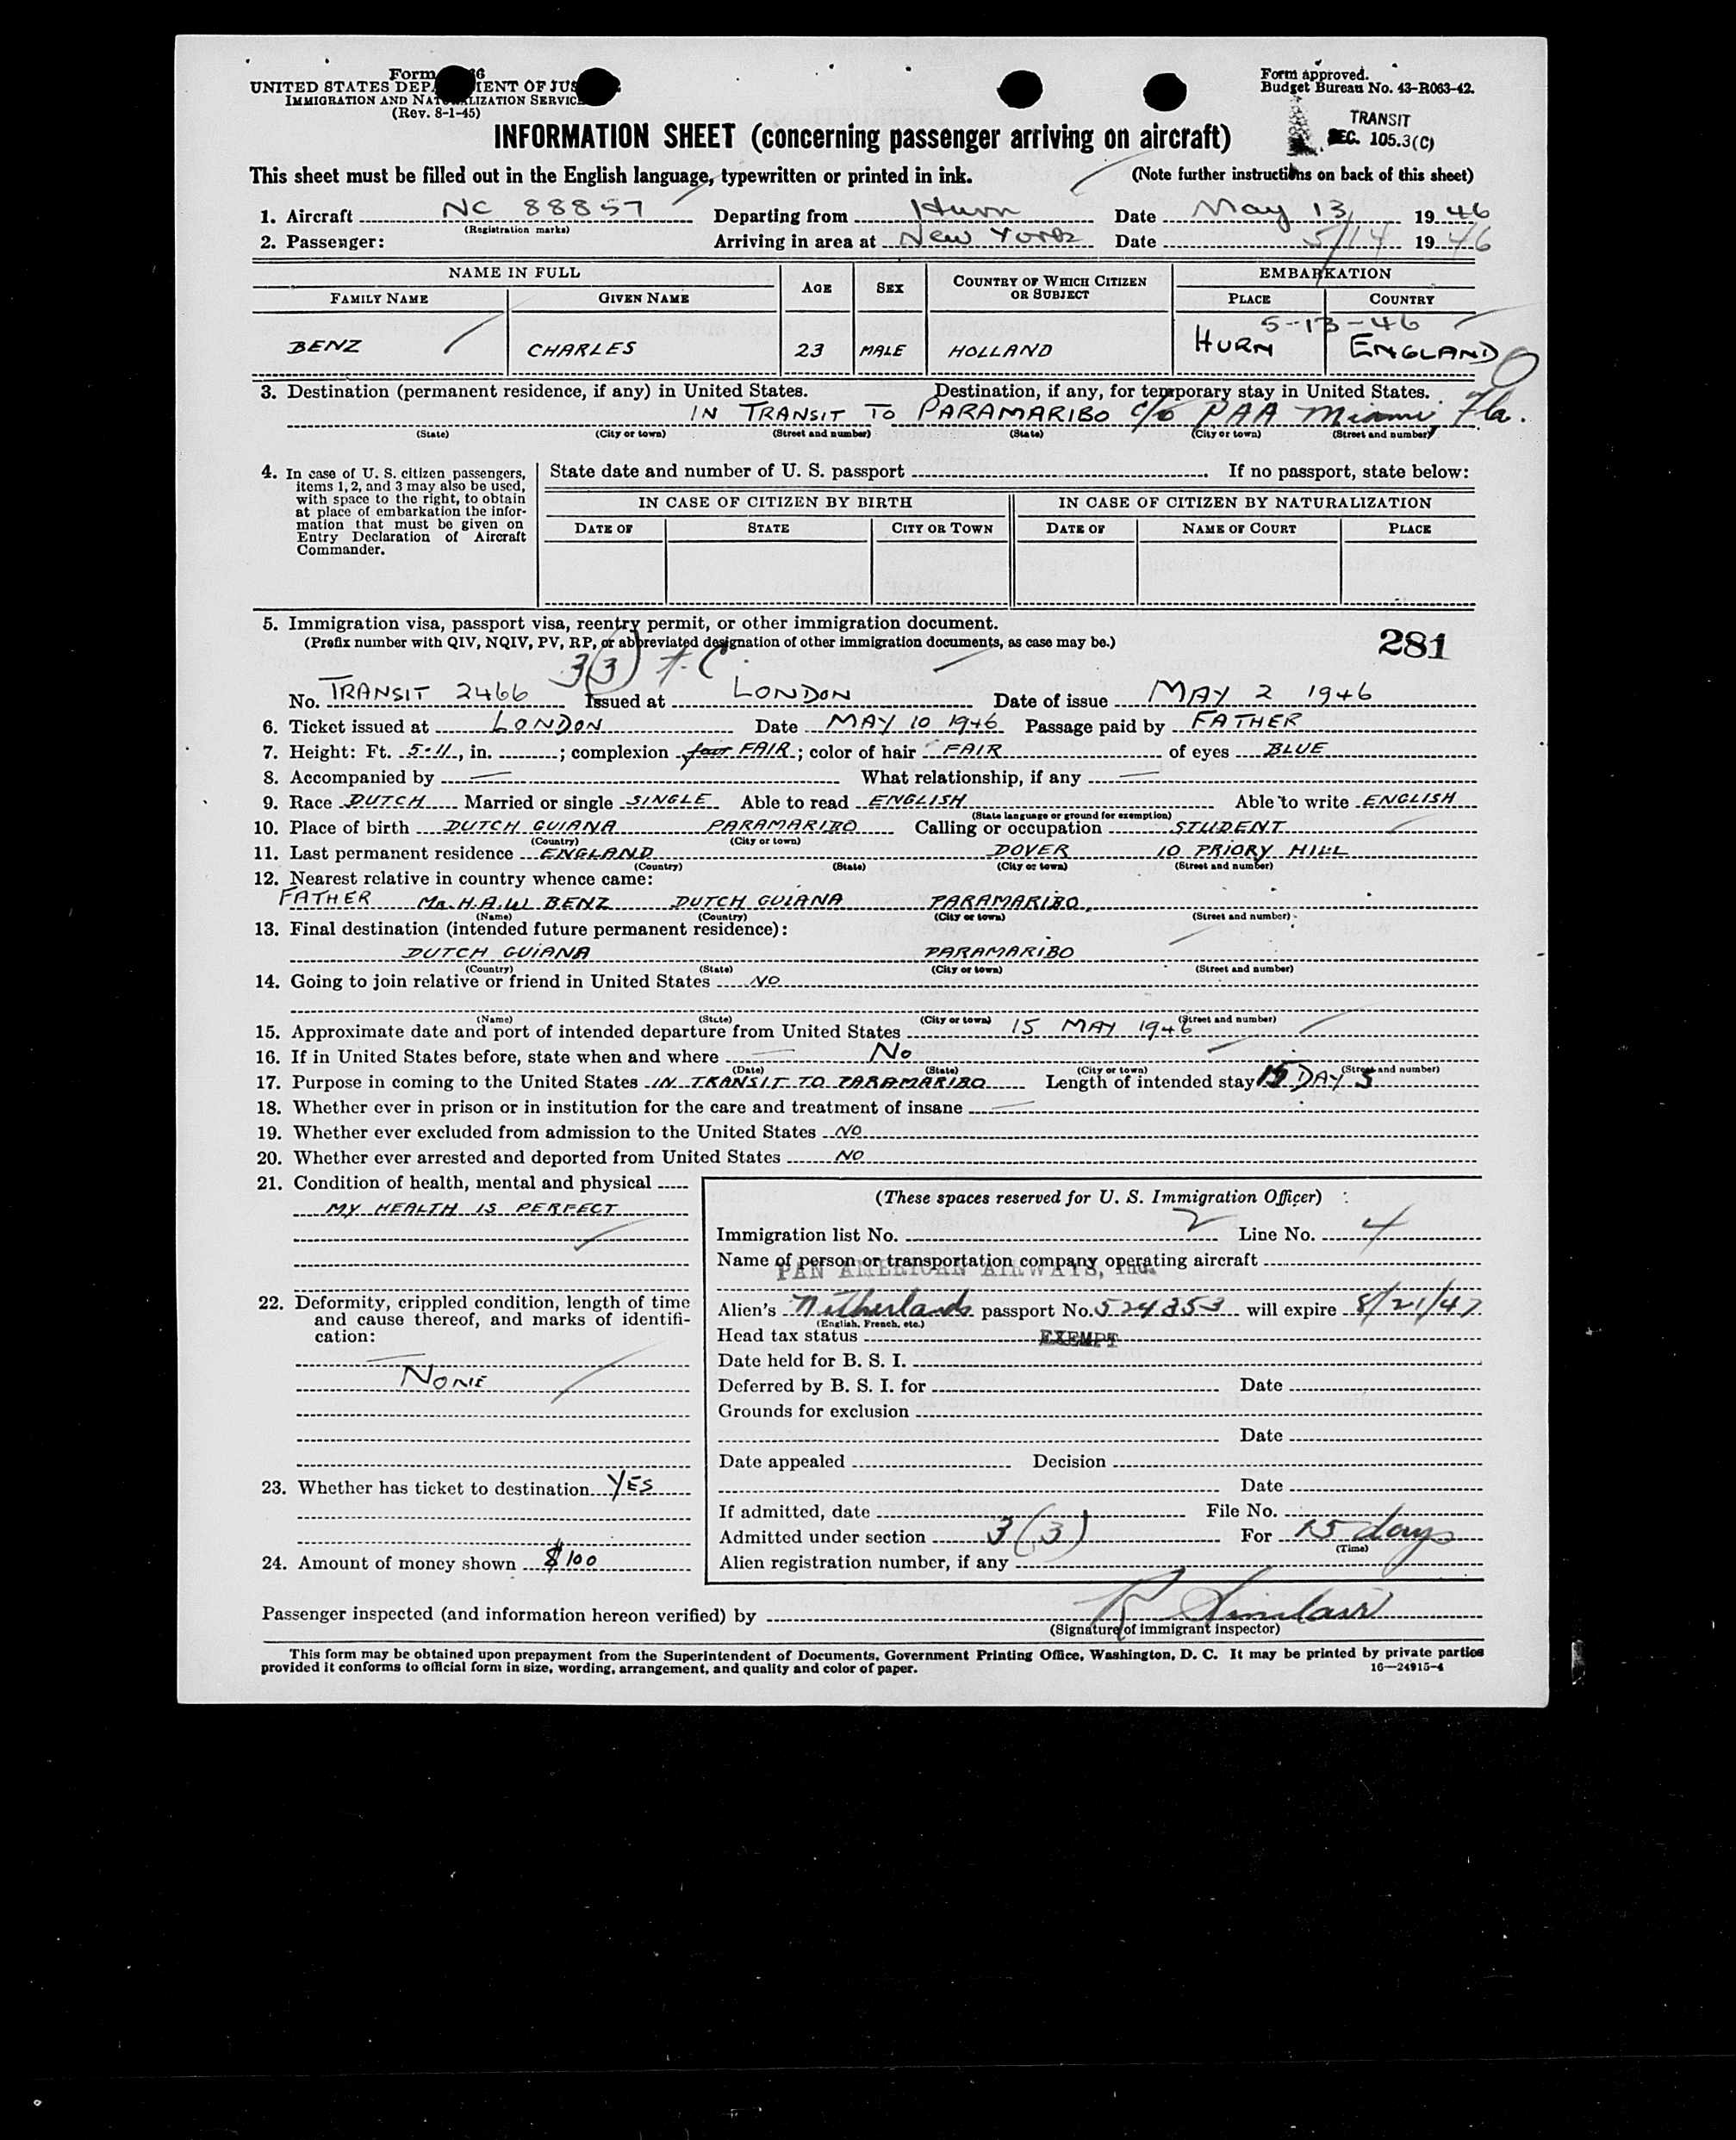 Form 66
UNITED STATES DEP IENT OF JUS
IMMIGRATION AND NAT LIZATION SERVIC
(Rev. 8-1-45)
Form approved.
Budget Bureau No. 43-R063-42.
TRANSIT
SEC. 105.3(C)
INFORMATION SHEET (concerning passenger arriving on aircraft)
This sheet must be filled out in the English language, typewritten or printed in ink. (Note further instructions on back of this sheet)
1. Aircraft NC 88857 Departing from Hurn Date May 13, 1946
(Registration marks)
2. Passenger: Arriving in area at New York Date 5/14 1946
NAME IN FULL AGE SEX COUNTRY OF WHICH CITIZEN OR SUBJECT EMBARKATION
FAMILY NAME GIVEN NAME PLACE COUNTRY
5-13-46
BENZ CHARLES 23 MALE HOLLAND HURN ENGLAND
3. Destination (permanent residence, if any) in United States. Destination, if any, for temporary stay in United States.
IN TRANSIT TO PARAMARIBO c/o PAA Miami, Fla.
(State) (City or town) (Street and number) (State) (City or town) (Street and number)
4. In case of U. S. citizen passengers, items 1, 2, and 3 may also be used, with space to the right, to obtain at place of embarkation the information that must be given on Entry Declaration of Aircraft Commander.
State date and number of U. S. passport If no passport, state below:
IN CASE OF CITIZEN BY BIRTH IN CASE OF CITIZEN BY NATURALIZATION
DATE OF STATE CITY OR TOWN DATE OF NAME OF COURT PLACE
5. Immigration visa, passport visa, reentry permit, or other immigration document.
(Prefix number with QIV, NQIV, PV, RP, or abbreviated designation of other immigration documents, as case may be.)
281
3(3)
No. TRANSIT 2466 Issued at LONDON Date of issue MAY 2 1946
6. Ticket issued at LONDON Date MAY 10 1946 Passage paid by FATHER
7. Height: Ft. 5-11, in. ; complexion fair FAIR; color of hair FAIR of eyes BLUE
8. Accompanied by — What relationship, if any —
9. Race DUTCH Married or single SINGLE Able to read ENGLISH Able to write ENGLISH
(State language or ground for exemption)
10. Place of birth DUTCH GUIANA PARAMARIBO Calling or occupation STUDENT
(Country) (City or town)
11. Last permanent residence ENGLAND DOVER 10 PRIORY HILL
(Country) (State) (City or town) (Street and number)
12. Nearest relative in country whence came:
FATHER Mr. H.A.W BENZ DUTCH GUIANA PARAMARIBO,
(Name) (Country) (City or town) (Street and number)
13. Final destination (intended future permanent residence):
DUTCH GUIANA PARAMARIBO
(Country) (State) (City or town) (Street and number)
14. Going to join relative or friend in United States NO
(Name) (State) (City or town) (Street and number)
15. Approximate date and port of intended departure from United States 15 MAY 1946
16. If in United States before, state when and where No
(Date) (State) (City or town) (Street and number)
17. Purpose in coming to the United States IN TRANSIT TO PARAMARIBO Length of intended stay 15 DAYS
18. Whether ever in prison or in institution for the care and treatment of insane —
19. Whether ever excluded from admission to the United States NO
20. Whether ever arrested and deported from United States NO
21. Condition of health, mental and physical
MY HEALTH IS PERFECT
22. Deformity, crippled condition, length of time and cause thereof, and marks of identification:
NONE
23. Whether has ticket to destination YES
24. Amount of money shown $100
(These spaces reserved for U. S. Immigration Officer)
Immigration list No. 2 Line No. 4
Name of person or transportation company operating aircraft
PAN AMERICAN AIRWAYS, Inc.
Alien's Netherlands passport No. 524353 will expire 8/21/47
(English, French, etc.)
Head tax status EXEMPT
Date held for B. S. I.
Deferred by B. S. I. for Date
Grounds for exclusion
Date
Date appealed Decision
Date
If admitted, date File No.
Admitted under section 3(3) For 15 days
(Time)
Alien registration number, if any
Passenger inspected (and information hereon verified) by R Sinclair
(Signature of immigrant inspector)
This form may be obtained upon prepayment from the Superintendent of Documents, Government Printing Office, Washington, D. C. It may be printed by private parties
provided it conforms to official form in size, wording, arrangement, and quality and color of paper. 16—24915-4